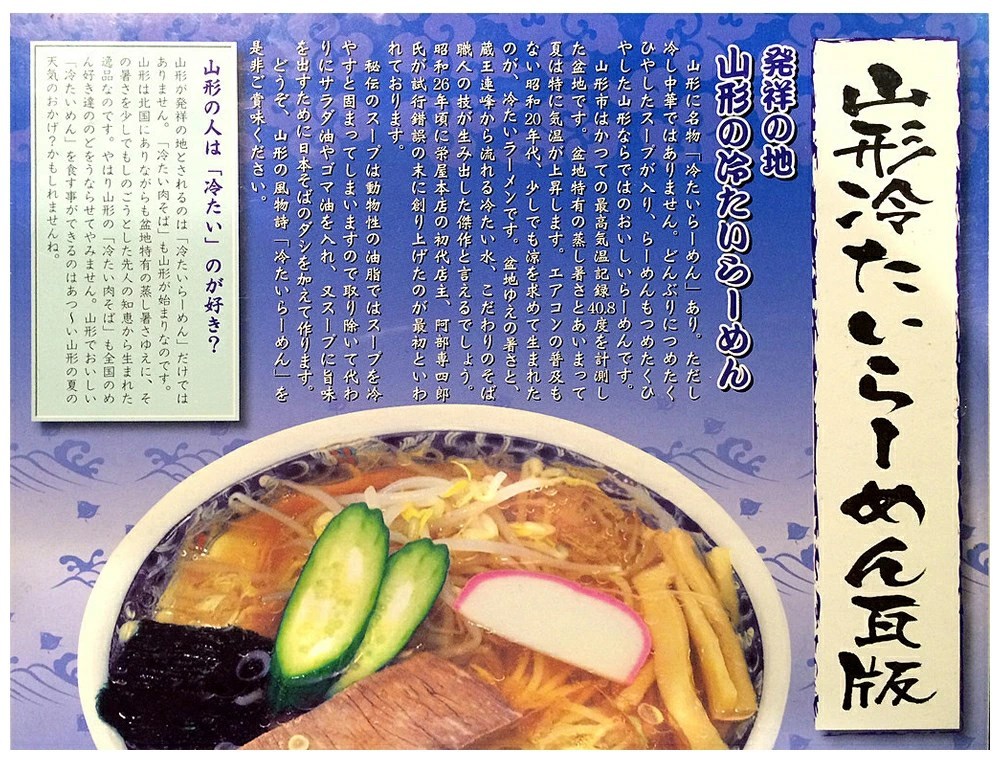 山形冷たいらーめん瓦版
発祥の地
山形の冷たいらーめん
山形に名物「冷たいらーめん」あり。ただし
冷し中華ではありません。どんぶりにつめたく
ひやしたスープが入り、らーめんもつめたくひ
やした山形ならではのおいしいらーめんです。
山形市はかつての最高気温記録40.8度を計測し
た盆地です。盆地特有の蒸し暑さとあいまって
夏は特に気温が上昇します。エアコンの普及も
ない昭和20年代、少しでも涼を求めて生まれた
のが、冷たいラーメンです。盆地ゆえの暑さと、
蔵王連峰から流れる冷たい水、こだわりのそば
職人の技が生み出した傑作と言えるでしょう。
昭和26年頃に栄屋本店の初代店主、阿部専四郎
氏が試行錯誤の末に創り上げたのが最初といわ
れております。
秘伝のスープは動物性の油脂ではスープを冷
やすと固まってしまいますので取り除いて代わ
りにサラダ油やゴマ油を入れ、又スープに旨味
を出すために日本そばのダシを加えて作ります。
どうぞ、山形の風物詩「冷たいらーめん」を
是非ご賞味ください。
山形の人は「冷たい」のが好き？
山形が発祥の地とされるのは「冷たいらーめん」だけでは
ありません。「冷たい肉そば」も山形が始まりなのです。
山形は北国にありながらも盆地特有の蒸し暑さゆえに、そ
の暑さを少しでもしのごうとした先人の知恵から生まれた
逸品なのです。やはり山形の「冷たい肉そば」も全国のめ
ん好き達ののどをうならせてやみません。山形でおいしい
「冷たいめん」を食す事ができるのはあつ〜い山形の夏の
天気のおかげ？かもしれませんね。